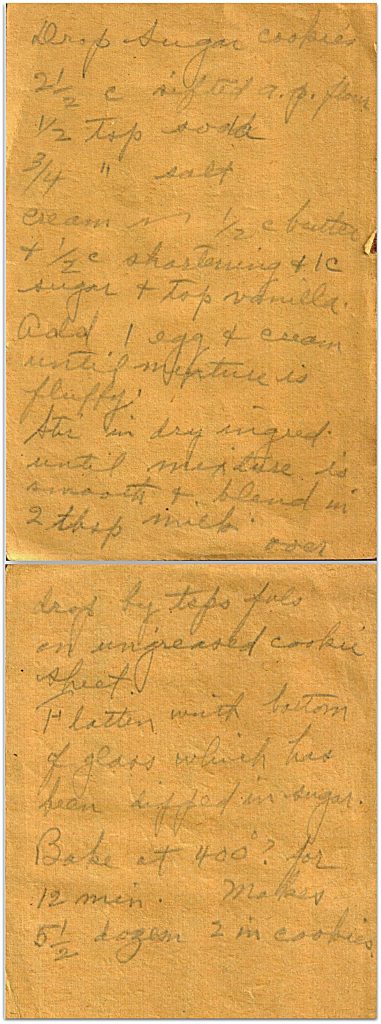 Drop Sugar cookies
2 1/2 c sifted a.p. flour
1/2 tsp soda
3/4 " salt
cream 1/2 c butter
+ 1/2 c shortening + 1c
sugar + tsp vanilla.
Add 1 egg + cream
until mixture is
fluffy.
Stir in dry ingred.
until mixture is
smooth + blend in
2 tbsp milk.
over
drop by tsps fuls
on ungreased cookie
sheet.
Flatten with bottom
of glass which has
been dipped in sugar.
Bake at 400°? for
12 min. Makes
5 1/2 dozen 2 in cookies